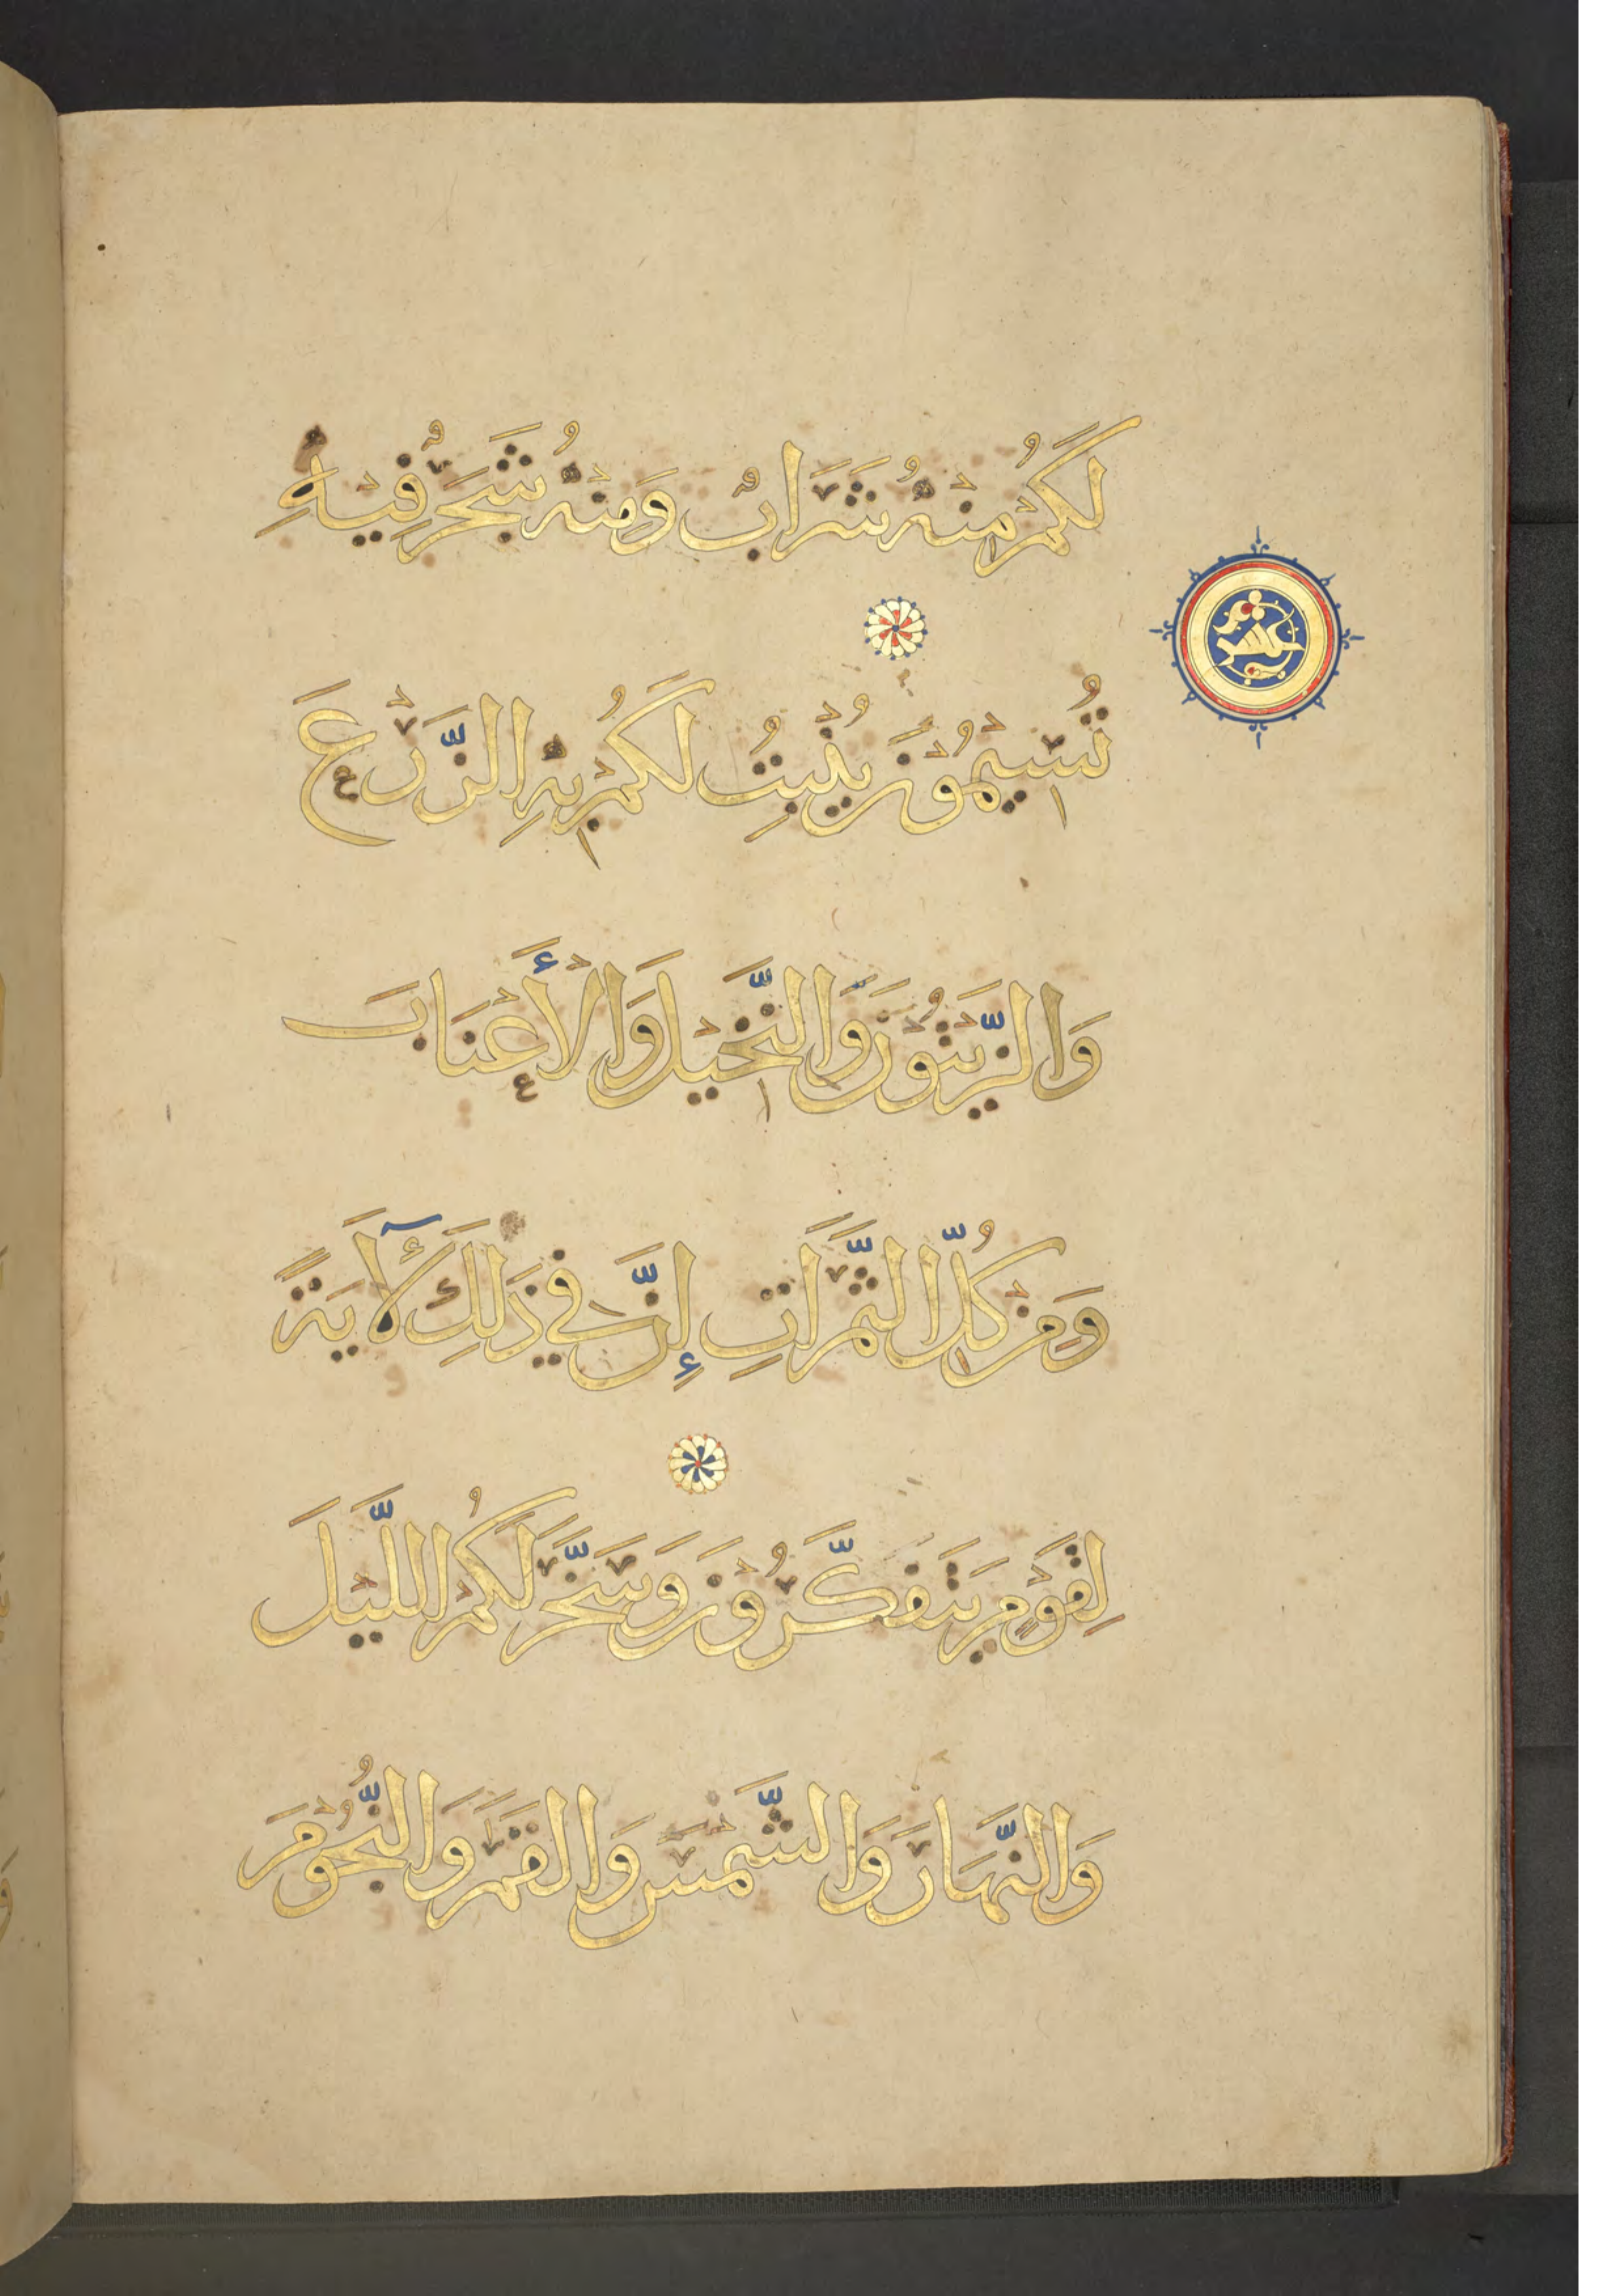 لَكُمْ مِنْهُ شَرَابٌ وَمِنْهُ شَجَرٌ فِيْهِ
عشر
تُسِيْمُوْنَ يُنْبِتُ لَكُمْ بِهِ الزَّرْعَ
وَالزَّيْتُوْنَ وَالنَّخِيْلَ وَالْأَعْنَابَ
وَمِنْ كُلِّ الثَّمَرَاتِ إِنَّ فِي ذَلِكَ لَآيَةً
لِقَوْمٍ يَتَفَكَّرُوْنَ وَسَخَّرَ لَكُمُ اللَّيْلَ
وَالنَّهَارَ وَالشَّمْسَ وَالْقَمَرَ وَالنُّجُوْمَ